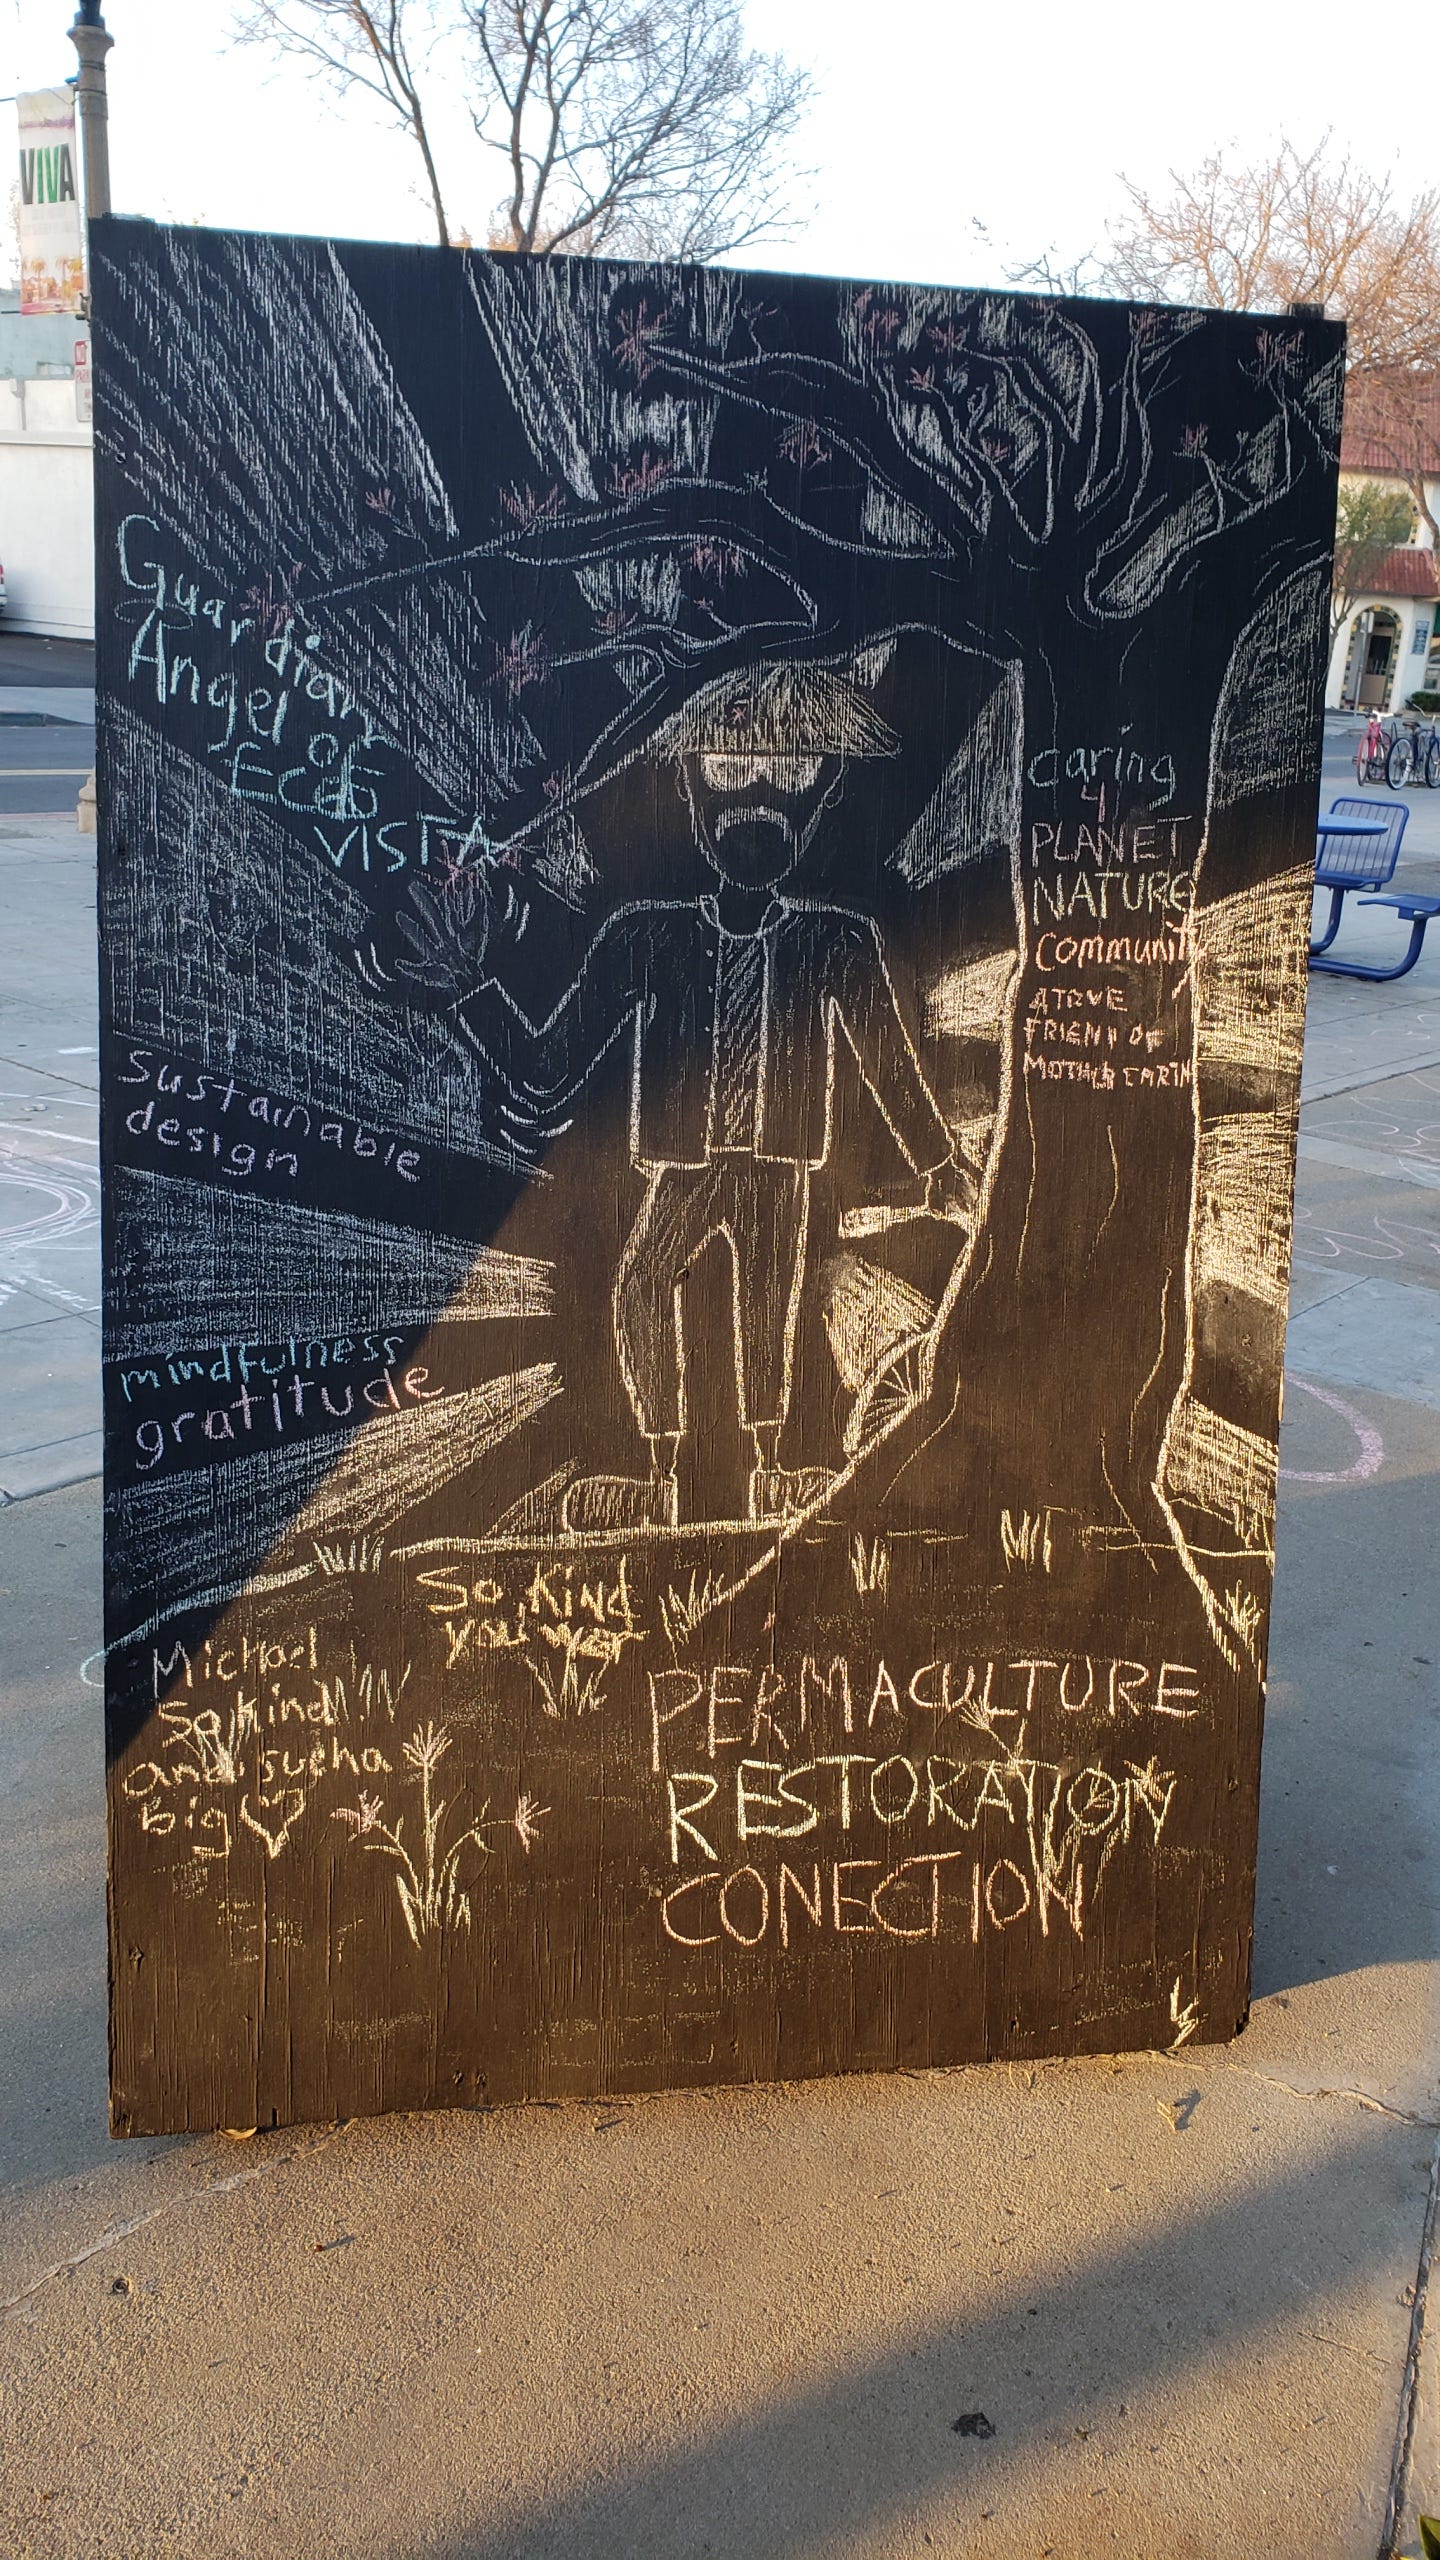 VIVA
Guardian
Angel of
ECO
VISTA
caring
4
PLANET
NATURE
Community
A TRUE
FRIEND OF
MOTHER EARTH
sustainable
design
mindfulness
gratitude
So kind
you wer
Michael
So kind
and such a
big
PERMACULTURE
RESTORATION
CONECTION